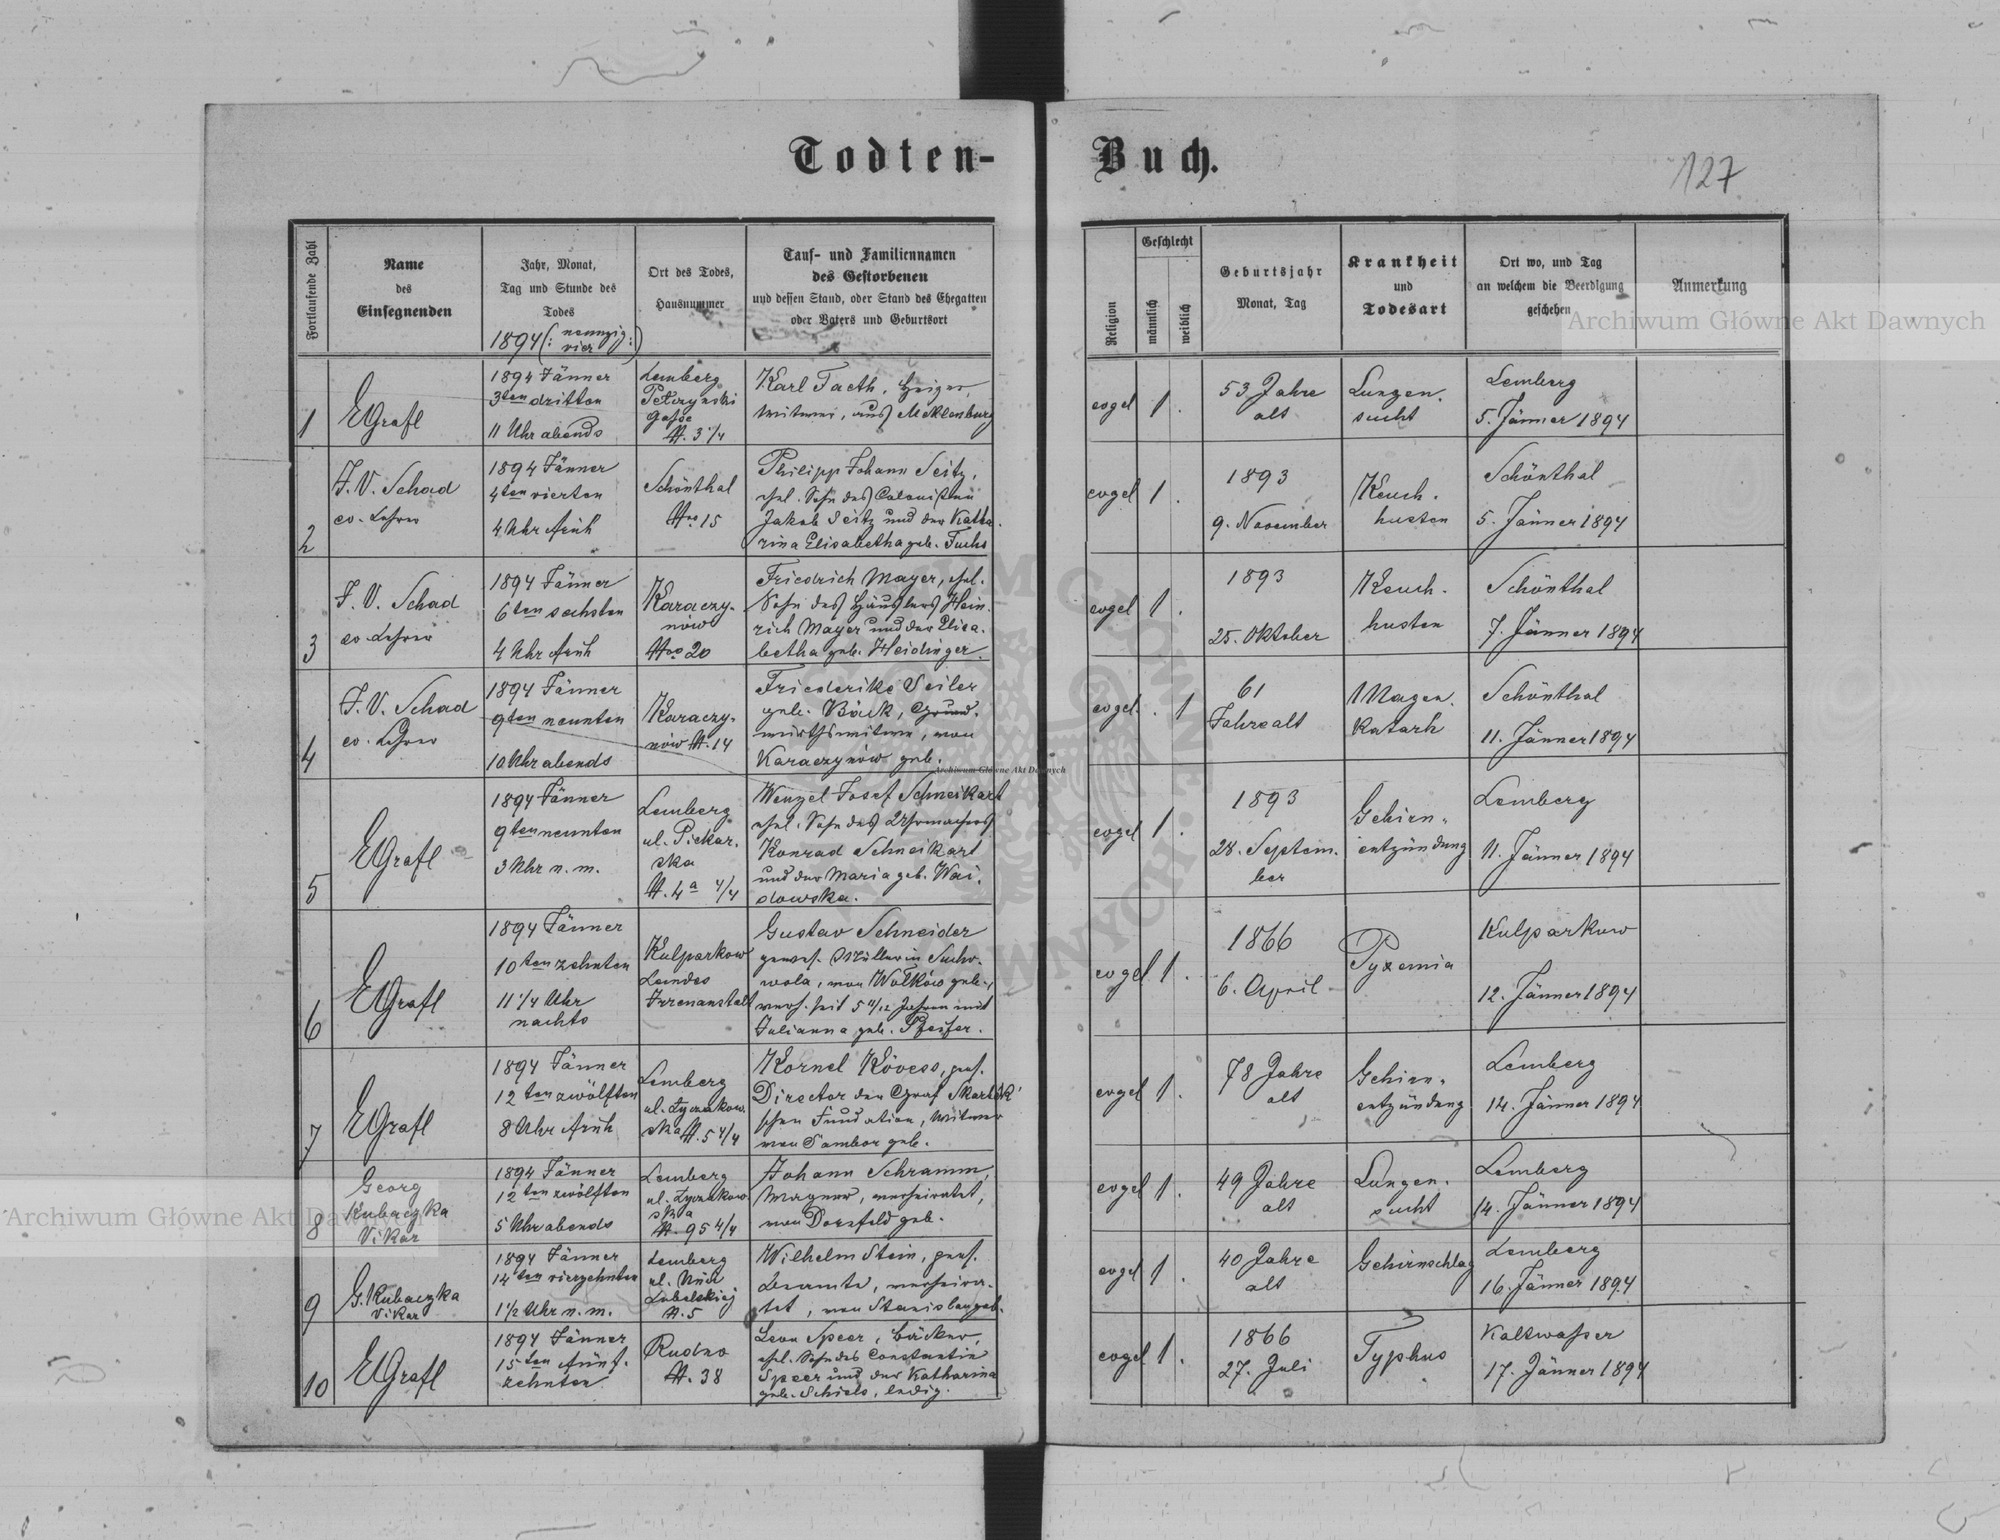 Todten-Buch.
127
Fortlaufende Zahl
Name
des
Einsegnenden
Jahr, Monat,
Tag und Stunde des
Todes
1894 (: neunzig
vier :)
Ort des Todes,
Hausnummer
Tauf- und Familiennamen
des Gestorbenen
und dessen Stand, oder Stand des Ehegatten
oder Vaters und Geburtsort
Religion
Geschlecht
männlich
weiblich
Geburtsjahr
Monat, Tag
Krankheit
und
Todesart
Ort wo, und Tag
an welchem die Beerdigung
geschehen
Anmerkung
1
EGrafl
1894 Jänner
3ten dritten
11 Uhr abends
Lemberg
Pełczynski
gasse
N. 3 1/4
Karl Facth, Heizer,
Witwer, aus Meklenburg
evgel
1.
53 Jahre
alt
Lungen-
sucht
Lemberg
5. Jänner 1894
2
J. V. Schad
ev. Lehrer
1894 Jänner
4ten vierten
4 Uhr früh
Schönthal
Nro 15
Philipp Johann Seitz,
ehel. Sohn des Colonisten
Jakob Seitz und der Katha-
rina Elisabetha geb. Fuchs
evgel
1.
1893
9. November
Keuch-
husten
Schönthal
5. Jänner 1894
3
J. V. Schad
ev. Lehrer
1894 Jänner
6ten sechsten
4 Uhr früh
Karaczy-
nów
Nro 20
Friedrich Mayer, ehel.
Sohn des Häuslers Hein-
rich Mayer und der Elisa-
betha geb. Heidinger.
evgel
1.
1893
25. Oktober
Keuch-
husten
Schönthal
7. Jänner 1894
4
J. V. Schad
ev. Lehrer
1894 Jänner
9ten neunten
10 Uhr abends
Karaczy-
nów N. 14
Friederike Seiler
geb. Bäck, Grund-
wirthswitwe, von
Karaczynów geb.
evgel.
. 1
61
Jahre alt
Magen-
katarh
Schönthal
11. Jänner 1894
5
EGrafl
1894 Jänner
9ten neunten
3 Uhr n. m.
Lemberg
ul. Piekar-
ska
N. 4a 4/4
Wenzel Josef Schneikart
ehel. Sohn des Uhrmachers
Konrad Schneikart
und der Maria geb. Wai-
dowska.
evgel
1.
1893
28. Septem-
ber
Gehirn-
entzündung
Lemberg
11. Jänner 1894
6
EGrafl
1894 Jänner
10ten zehnten
11 1/4 Uhr
nachts
Kulparkow
Landes
Irrenanstalt
Gustav Schneider
gewes. Müller in Sucho-
wola, von Wołków geb.,
verh. seit 5 11/12 Jahren mit
Julianna geb. Pfeifer.
evgel
1.
1866
6. April
Pyæmia
Kulparkow
12. Jänner 1894
7
EGrafl
1894 Jänner
12ten zwölften
8 Uhr früh
Lemberg
ul. Łyczakow-
ska N. 5 4/4
Kornel Kövess, pens.
Director der Graf Skarbek'
schen Fundation, Witwer
von Sambor geb.
evgel
1.
78 Jahre
alt
Gehirn-
entzündung
Lemberg
14. Jänner 1894
8
Georg
Kubaczka
Vikar
1894 Jänner
12ten zwölften
5 Uhr abends
Lemberg
ul. Łyczakow-
ska
N. 95 4/4
Johann Schramm,
Wagner, verheiratet,
von Dornfeld geb.
evgel
1.
49 Jahre
alt
Lungen-
sucht
Lemberg
14. Jänner 1894
9
G. Kubaczka
Vikar
1894 Jänner
14ten vierzehnten
1 1/2 Uhr n. m.
Lemberg
ul. Unii
Lubelskiej
N. 5
Wilhelm Stein, pens.
Beamte, verheira-
tet, von Stanislau geb.
evgel
1.
40 Jahre
alt
Gehirnschlag
Lemberg
16. Jänner 1894
10
EGrafl
1894 Jänner
15ten fünf-
zehnten
Rudno
N. 38
Leon Speer, Bäcker,
ehel. Sohn des Constantin
Speer und der Katharina
geb. Schiels, ledig.
evgel
1.
1866
27. Juli
Typhus
Kaltwasser
17. Jänner 1894
Archiwum Główne Akt Dawnych
Archiwum Główne Akt Dawnych
Archiwum Główne Akt Dawnych